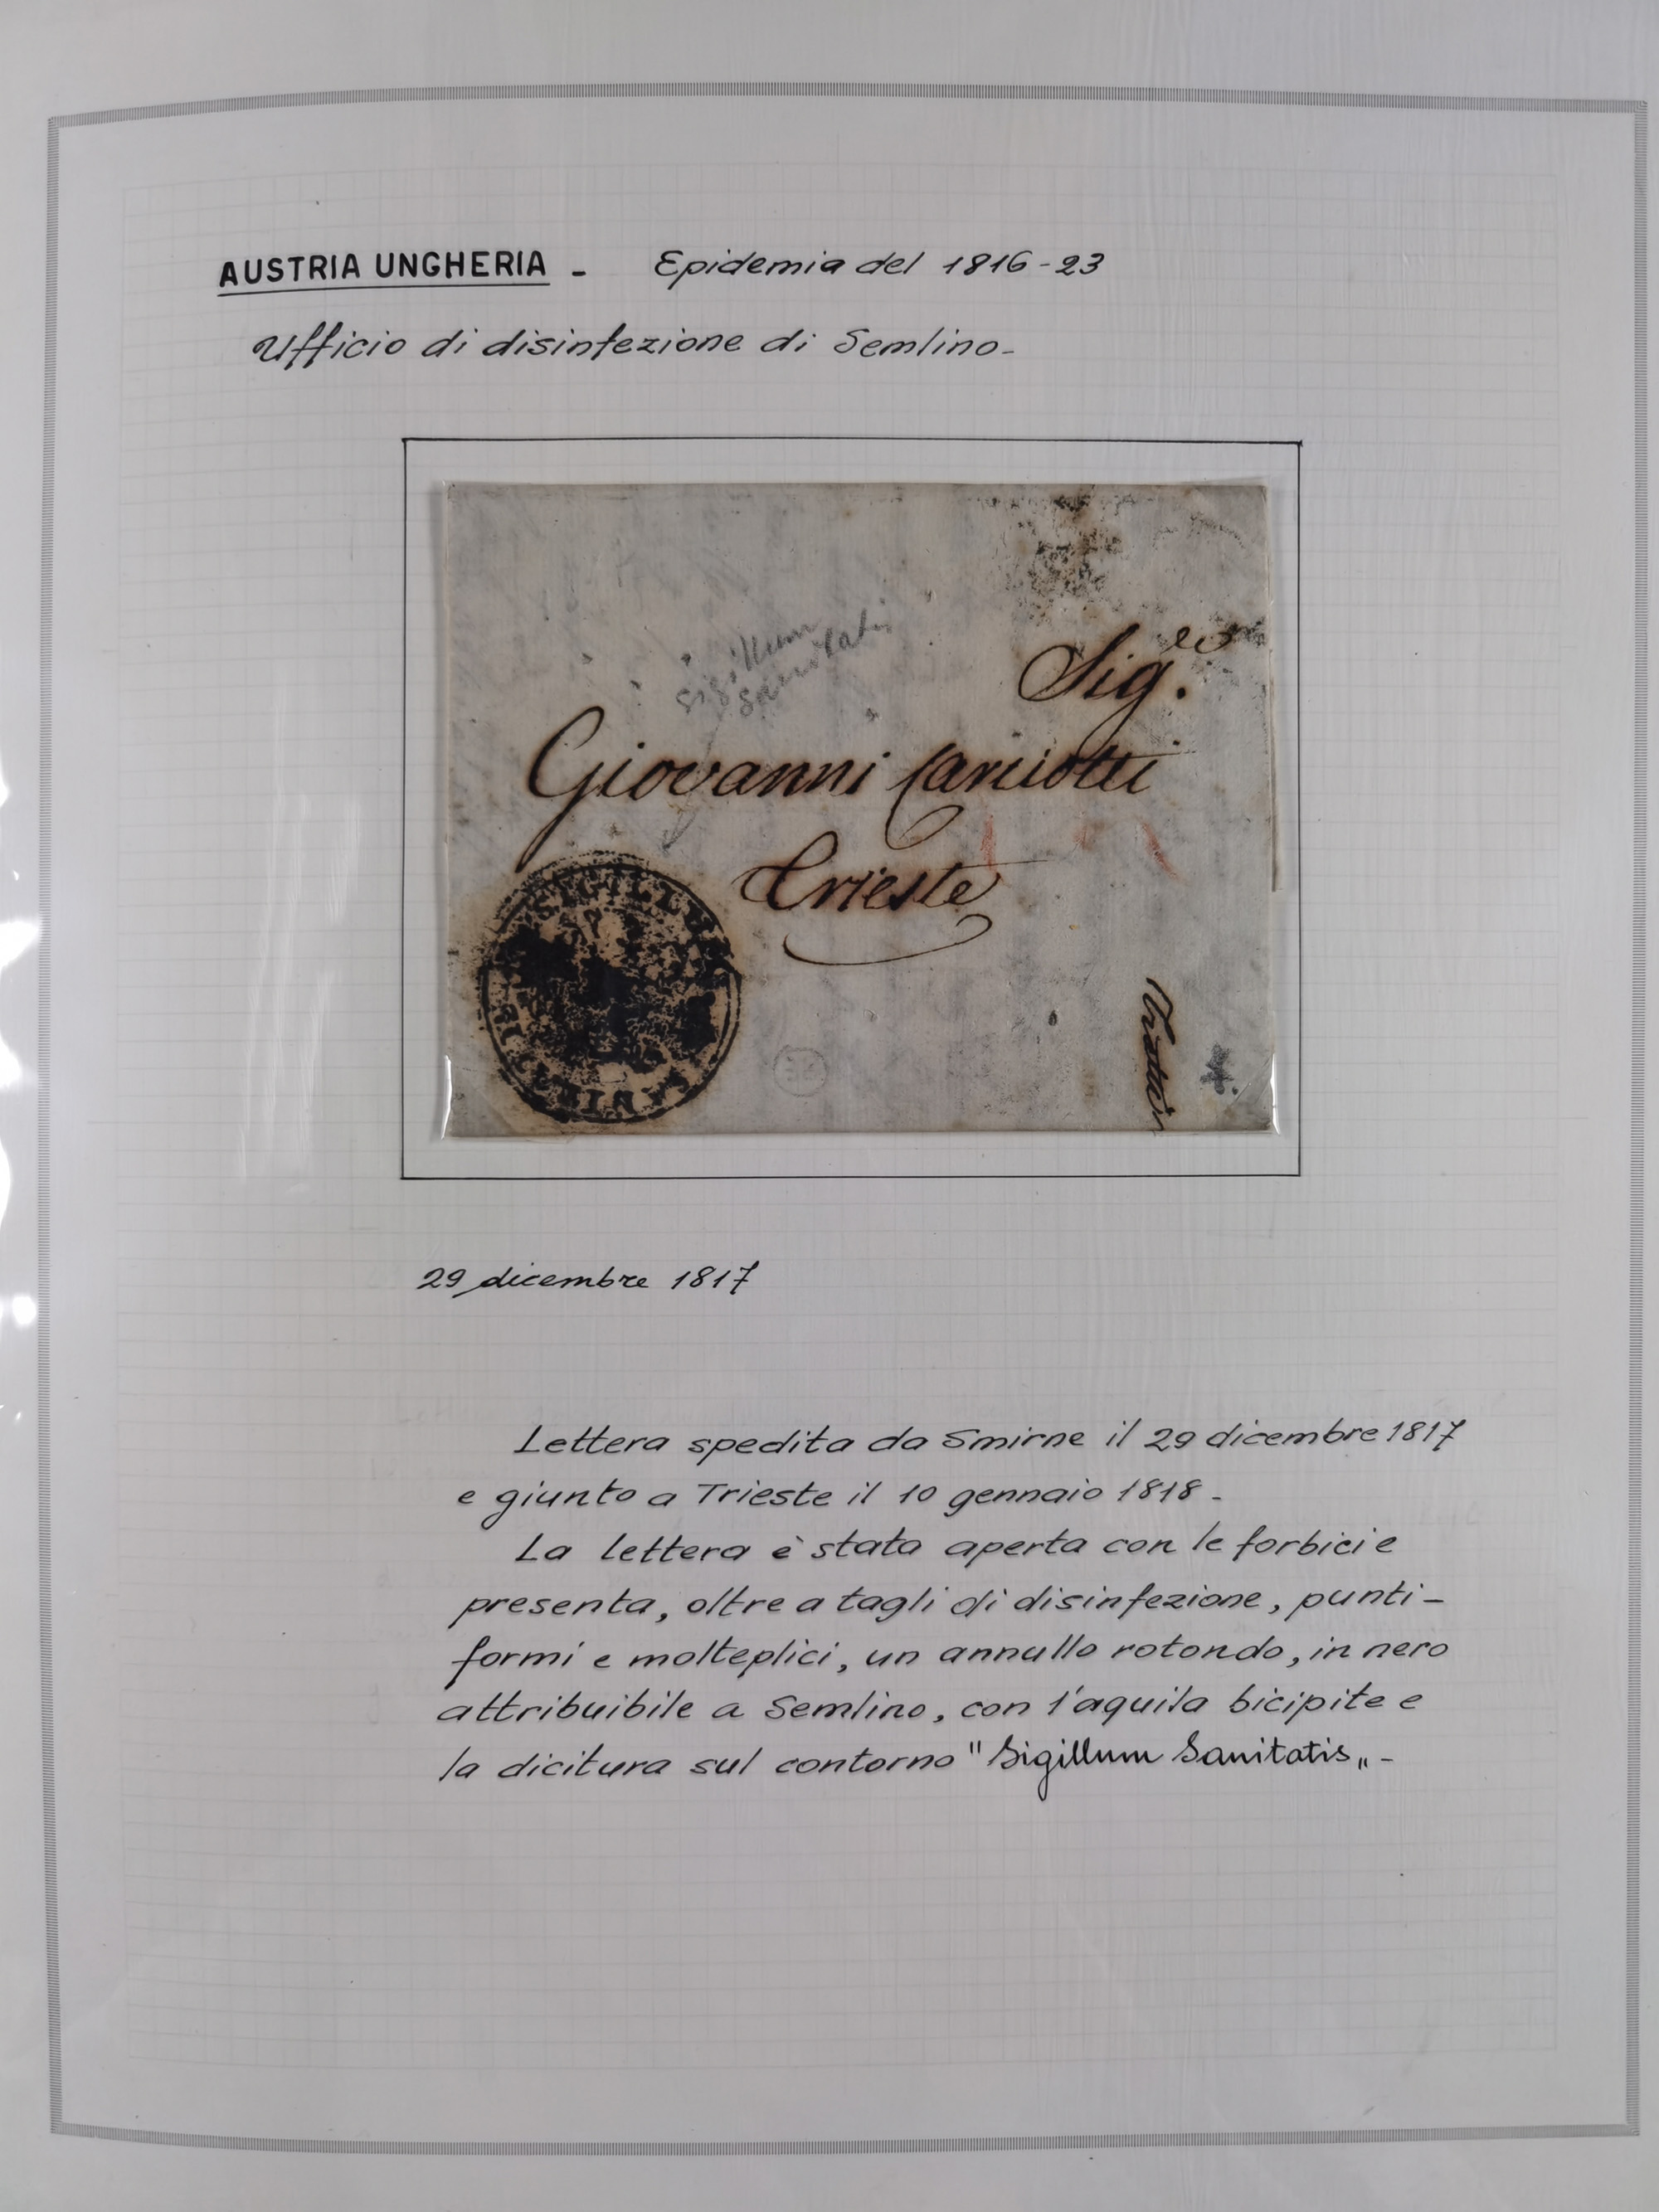 AUSTRIA UNGHERIA - Epidemia del 1816-23
Ufficio di disinfezione di Semlino-
Sigillum
Sanitatis
Sig.re
Giovanni Carciotti
Trieste
SIGILLUM
SANITATIS
29 dicembre 1817
Lettera spedita da Smirne il 29 dicembre 1817
e giunto a Trieste il 10 gennaio 1818-
La lettera è stata aperta con le forbici e
presenta, oltre a tagli di disinfezione, punti-
formi e molteplici, un annullo rotondo, in nero
attribuibile a Semlino, con l'aquila bicipite e
la dicitura sul contorno "Sigillum Sanitatis„-